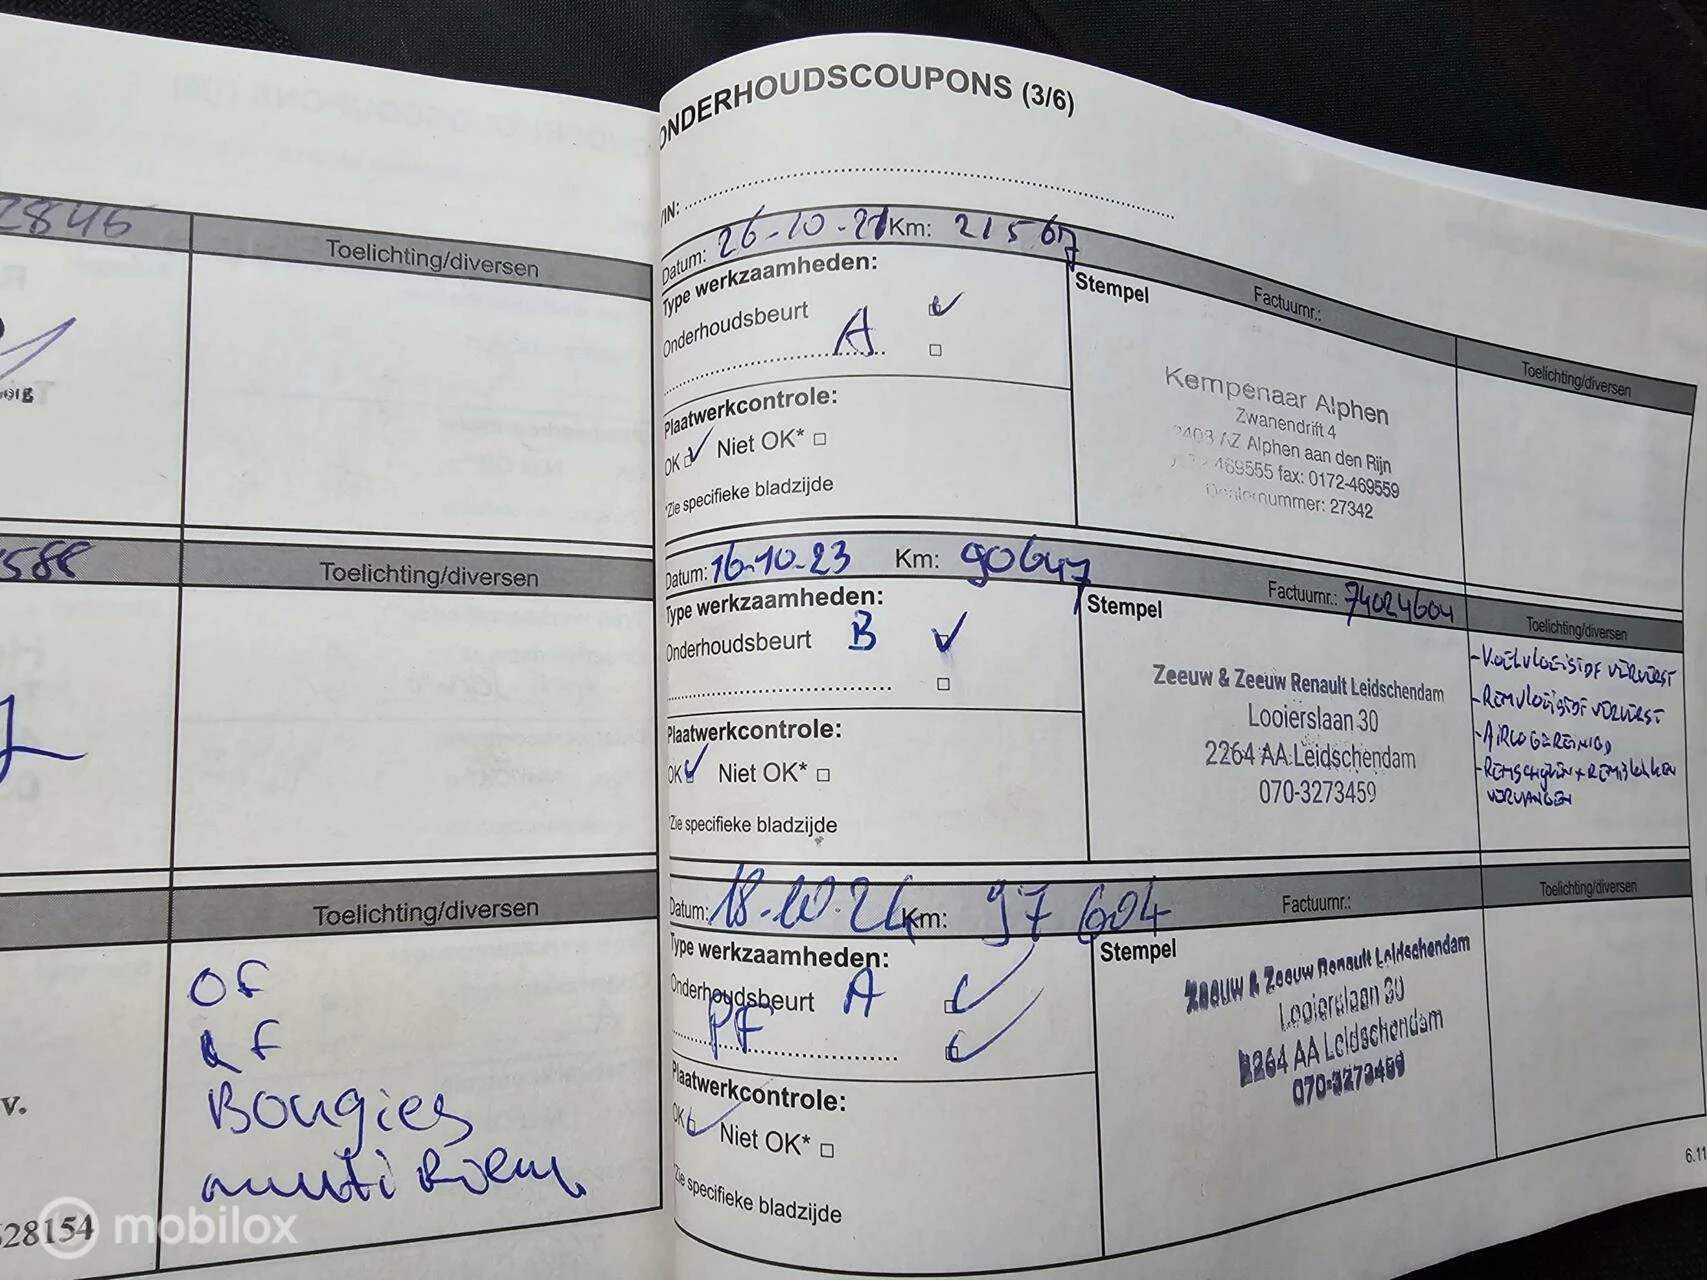 2846
Toelichting/diversen
588
Toelichting/diversen
Toelichting/diversen
OF
LF
Bougies
multi Riem
v.
628154
mobilox
ONDERHOUDSCOUPONS (3/6)
VIN:
Datum: 26-10-21 Km: 21567
Type werkzaamheden:
Onderhoudsbeurt A
Stempel
Factuurnr.:
Toelichting/diversen
Kempenaar Alphen
Zwanendrift 4
2403 AZ Alphen aan den Rijn
0172-469555 fax: 0172-469559
Dealernummer: 27342
Plaatwerkcontrole:
OK Niet OK*
*Zie specifieke bladzijde
Datum: 16-10-23 Km: 90647
Type werkzaamheden:
Onderhoudsbeurt B
Stempel
Factuurnr.: 74024604
Toelichting/diversen
Zeeuw & Zeeuw Renault Leidschendam
Looierslaan 30
2264 AA Leidschendam
070-3273459
- KOELVLOEISTOF VERVERST
- REMVLOEISTOF VERVERST
- AIRCO GEREINIGD
- REMSCHIJVEN + REMBLOKKEN
VERVANGEN
Plaatwerkcontrole:
OK Niet OK*
*Zie specifieke bladzijde
Datum: 18-10-24 Km: 97604
Type werkzaamheden:
Onderhoudsbeurt A
PF
Stempel
Factuurnr.:
Toelichting/diversen
Zeeuw & Zeeuw Renault Leidschendam
Looierslaan 30
2264 AA Leidschendam
070-3273459
Plaatwerkcontrole:
OK Niet OK*
*Zie specifieke bladzijde
6.11